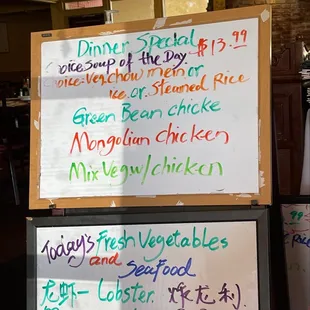 Dinner Special $13.99
Choice Soup of the Day
Choice: Veg. Chow mein or
Rice or Steamed Rice
Green Bean chicke
Mongolian chicken
Mix Veg w/ chicken
Today's Fresh Vegetables
and Seafood
龙虾 - Lobster.